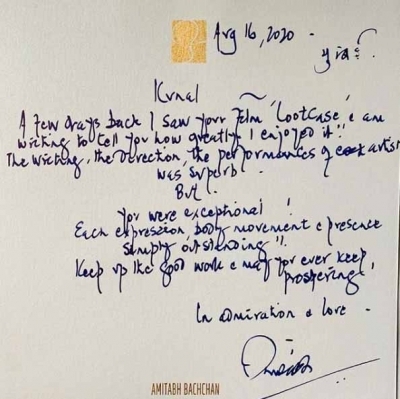 Aug 16, 2020 -
Kunal
A few days back I saw your film 'Lootcase' & am
writing to tell you how greatly I enjoyed it !!
The writing, the direction, the performances of artist
was superb.
But
you were exceptional !
Each expression, body movement & presence
simply outstanding !!
Keep up the good work & may you ever keep
prospering !
In admiration & love -
AMITABH BACHCHAN